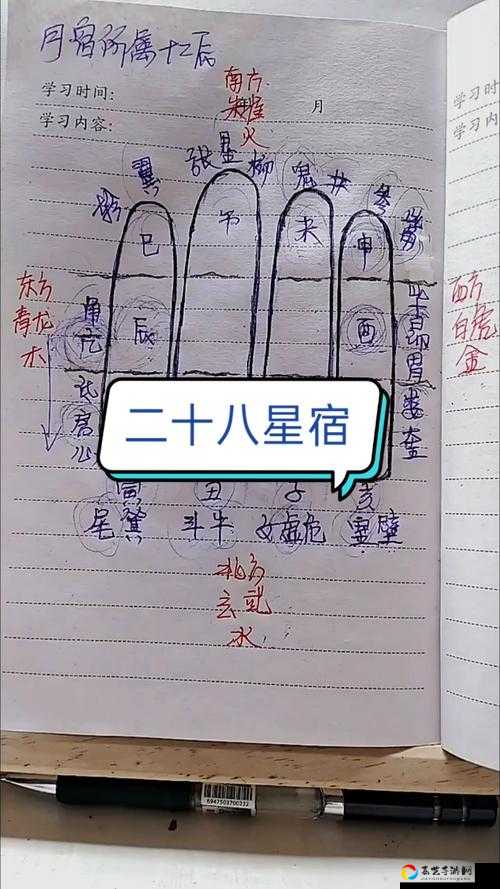 月宿所属十二辰
学习时间: 月
学习内容:
南方
朱雀
火
学习时间
学习内容:
轸 翼 张 星 柳 鬼 井 参 觜
巳 午 未 申
东方
青龙
木
角
亢
氐
房
心
辰
酉
毕
昴
胃
娄
奎
西方
白虎
金
二十八星宿
寅 丑 子 亥
尾 箕 斗牛 女虚危 室壁
北方
玄武
水
6947503700232
嘉艺手游网